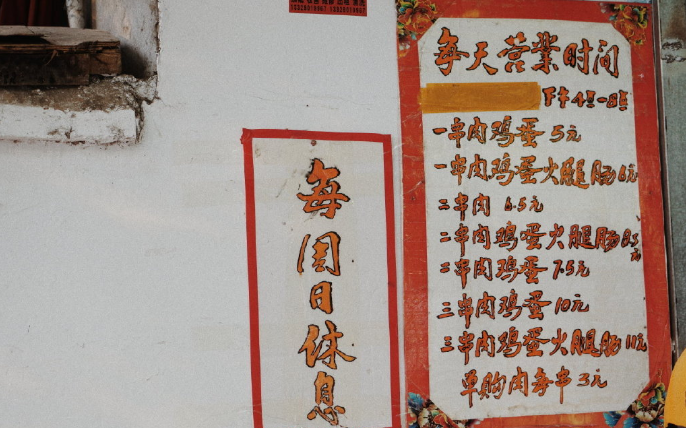 每天营业时间
下午4点-8点
一串肉鸡蛋 5元
一串肉鸡蛋火腿肠6元
二串肉 6.5元
二串肉鸡蛋火腿肠8.5元
二串肉鸡蛋 7.5元
三串肉鸡蛋 10元
三串肉鸡蛋火腿肠11元
单购肉每串3元
每周日休息